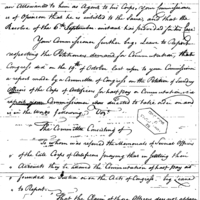 an Allowance to him as Agent to his Corps, Your Commissioner
is of Opinion that he is entitled to the Same, and that the
Resolve of the 6th September instant has provided for the Case
Your Commissioner further begs Leave to Report
respecting the Petitioners demand for Commutation, that
Congress did on the 19th of October last upon your Commissioner
a report made by a Committee of Congress on the Petition of Sundry
Officers of the Corps of Artificers for half pay or Commutation
report your Commissioner was directed to take order on and
is in the Words following. Viz.
The Committee Consisting of
to whom were referred the Memorials of Several Officers
of the late Corps of Artificers praying that in settling their
Accounts they be allowed the Commutation of half pay as
founded in Justice or on the Acts of Congress. beg Leave
to Report.
That the Claim of these Officers does not appear